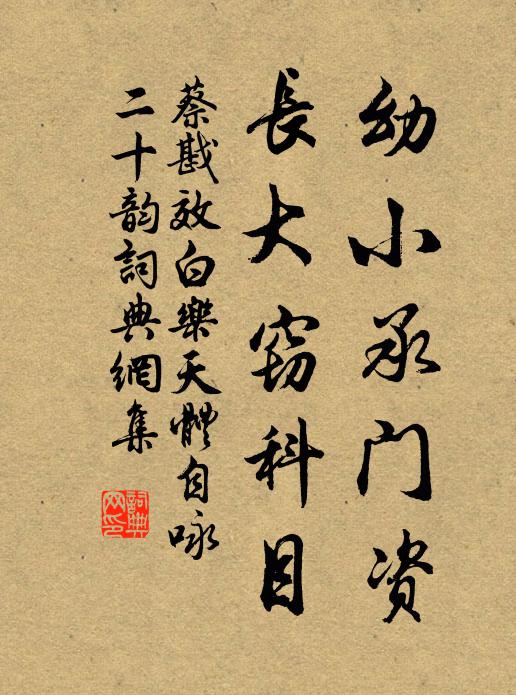 幼小承门资
長大窃科目
蔡戡效白樂天體自咏
二十韵詞典網集
詞典網印